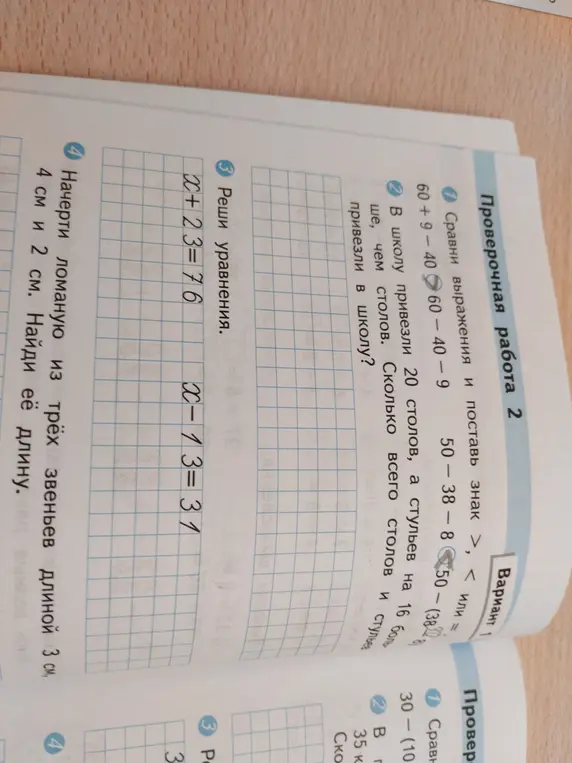 Проверочная работа 2
Вариант 1
1 Сравни выражения и поставь знак >, < или =
60 + 9 − 40 > 60 − 40 − 9 50 − 38 − 8 < 50 − (38
2 В школу привезли 20 столов, а стульев на 16 боль
ше, чем столов. Сколько всего столов и стульев
привезли в школу?
3 Реши уравнения.
x+23=76 x−13=31
4 Начерти ломаную из трёх звеньев длиной 3 см,
4 см и 2 см. Найди её длину.
Провер
1 Срав
30 − (10
2 В
35 к
Ско
3 Р
3
4